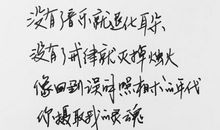 没有了音乐就退化耳朵
没有了戒律就灭掉烛火
像回到误解照相的年代
你摄取我的灵魂